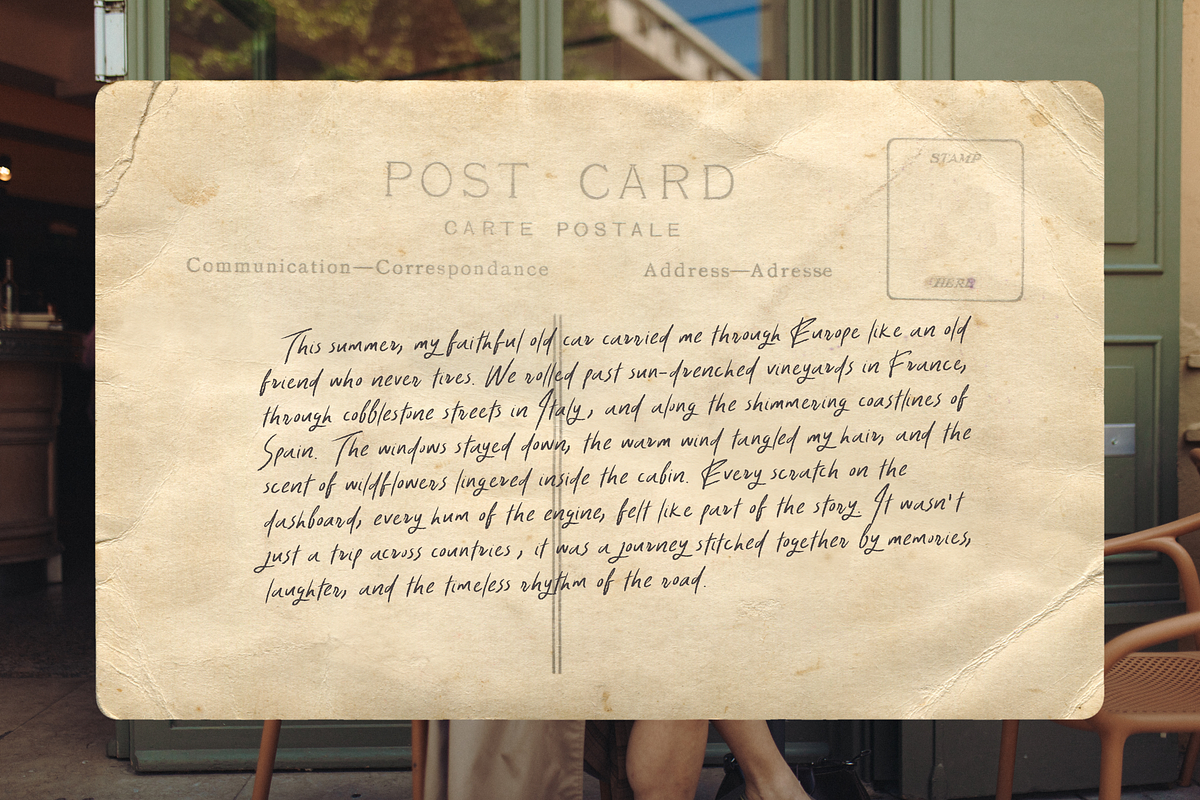 POST CARD
CARTE POSTALE
Communication—Correspondance
Address—Adresse
STAMP
HERE
This summer, my faithful old car carried me through Europe like an old
friend who never tires. We rolled past sun-drenched vineyards in France,
through cobblestone streets in Italy, and along the shimmering coastlines of
Spain. The windows stayed down, the warm wind tangled my hair, and the
scent of wildflowers lingered inside the cabin. Every scratch on the
dashboard, every hum of the engine, felt like part of the story. It wasn't
just a trip across countries, it was a journey stitched together by memories,
laughter, and the timeless rhythm of the road.